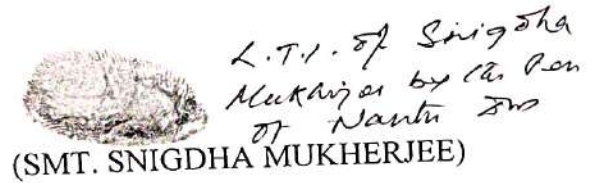 L.T.I. of Snigdha
Mukherjee by the Pen
of Nantu
(SMT. SNIGDHA MUKHERJEE)